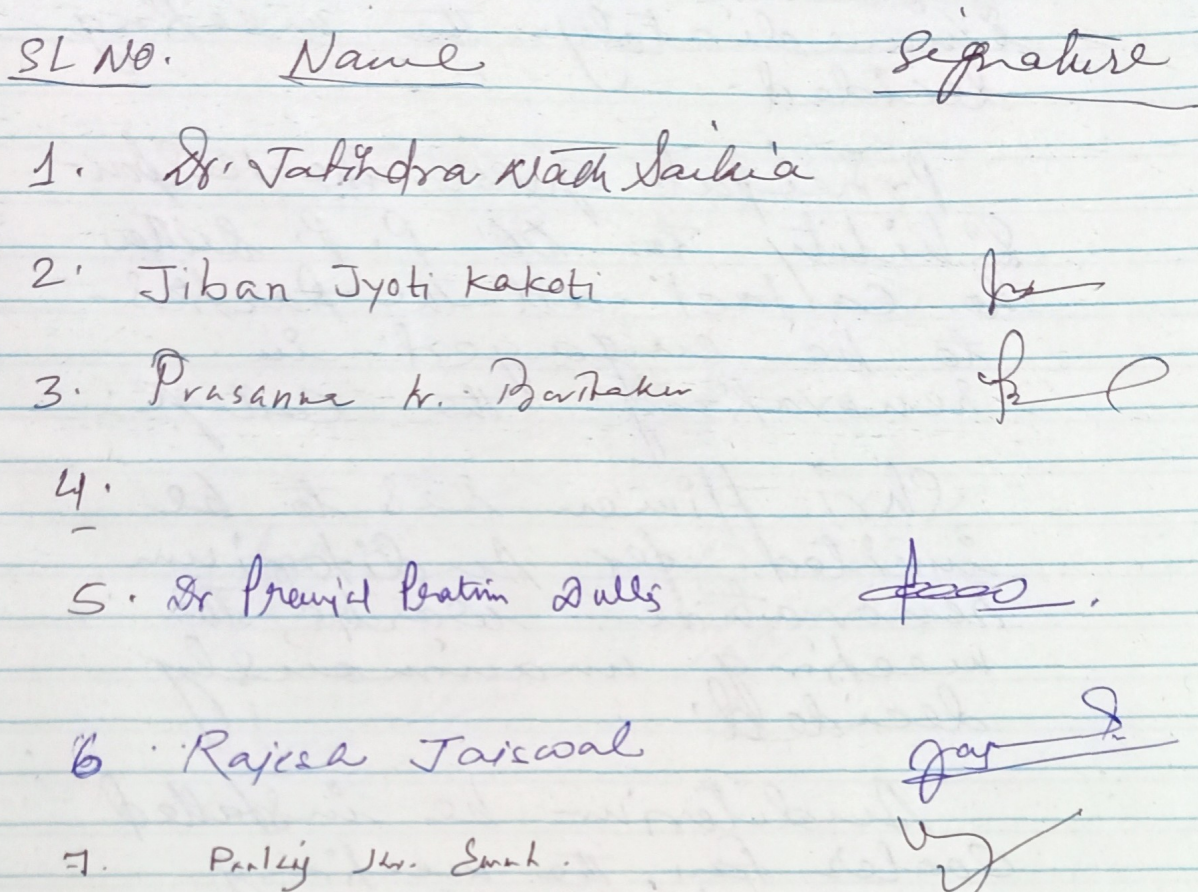 SL NO. Name Signature
1. Dr. Jatindra Nath Saikia
2. Jiban Jyoti Kakoti
3. Prasanna kr. Borthakur
4.
5. Dr Pratim
6 Rajesh Jaiswal
7. Pankaj Kr.